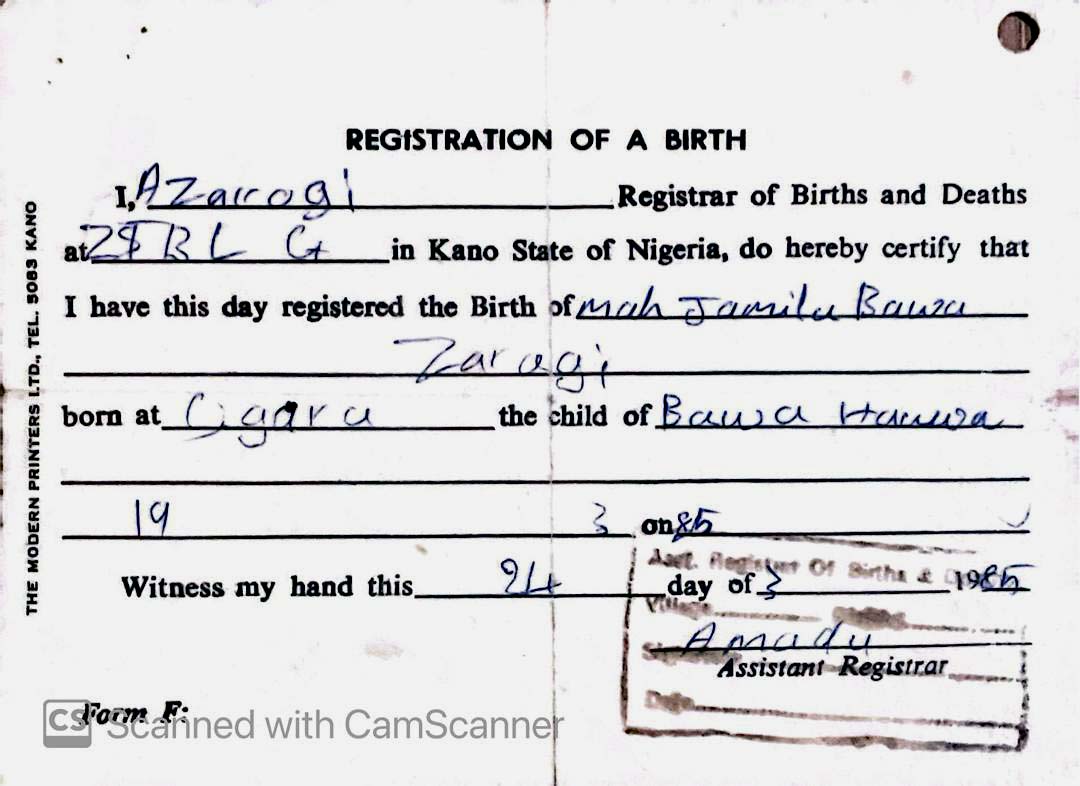 REGISTRATION OF A BIRTH
I, A Zarogi Registrar of Births and Deaths
at ZSB L G in Kano State of Nigeria, do hereby certify that
I have this day registered the Birth of mah Jamilu Bawa
Zarogi
born at the child of Bawa
19 3 on 85
Witness my hand this 24 day of 3 1985
Asst. Registrar Of Births &
Village
Amadu
Assistant Registrar
Date
Form F:
CS Scanned with CamScanner
THE MODERN PRINTERS LTD., TEL. 5083 KANO